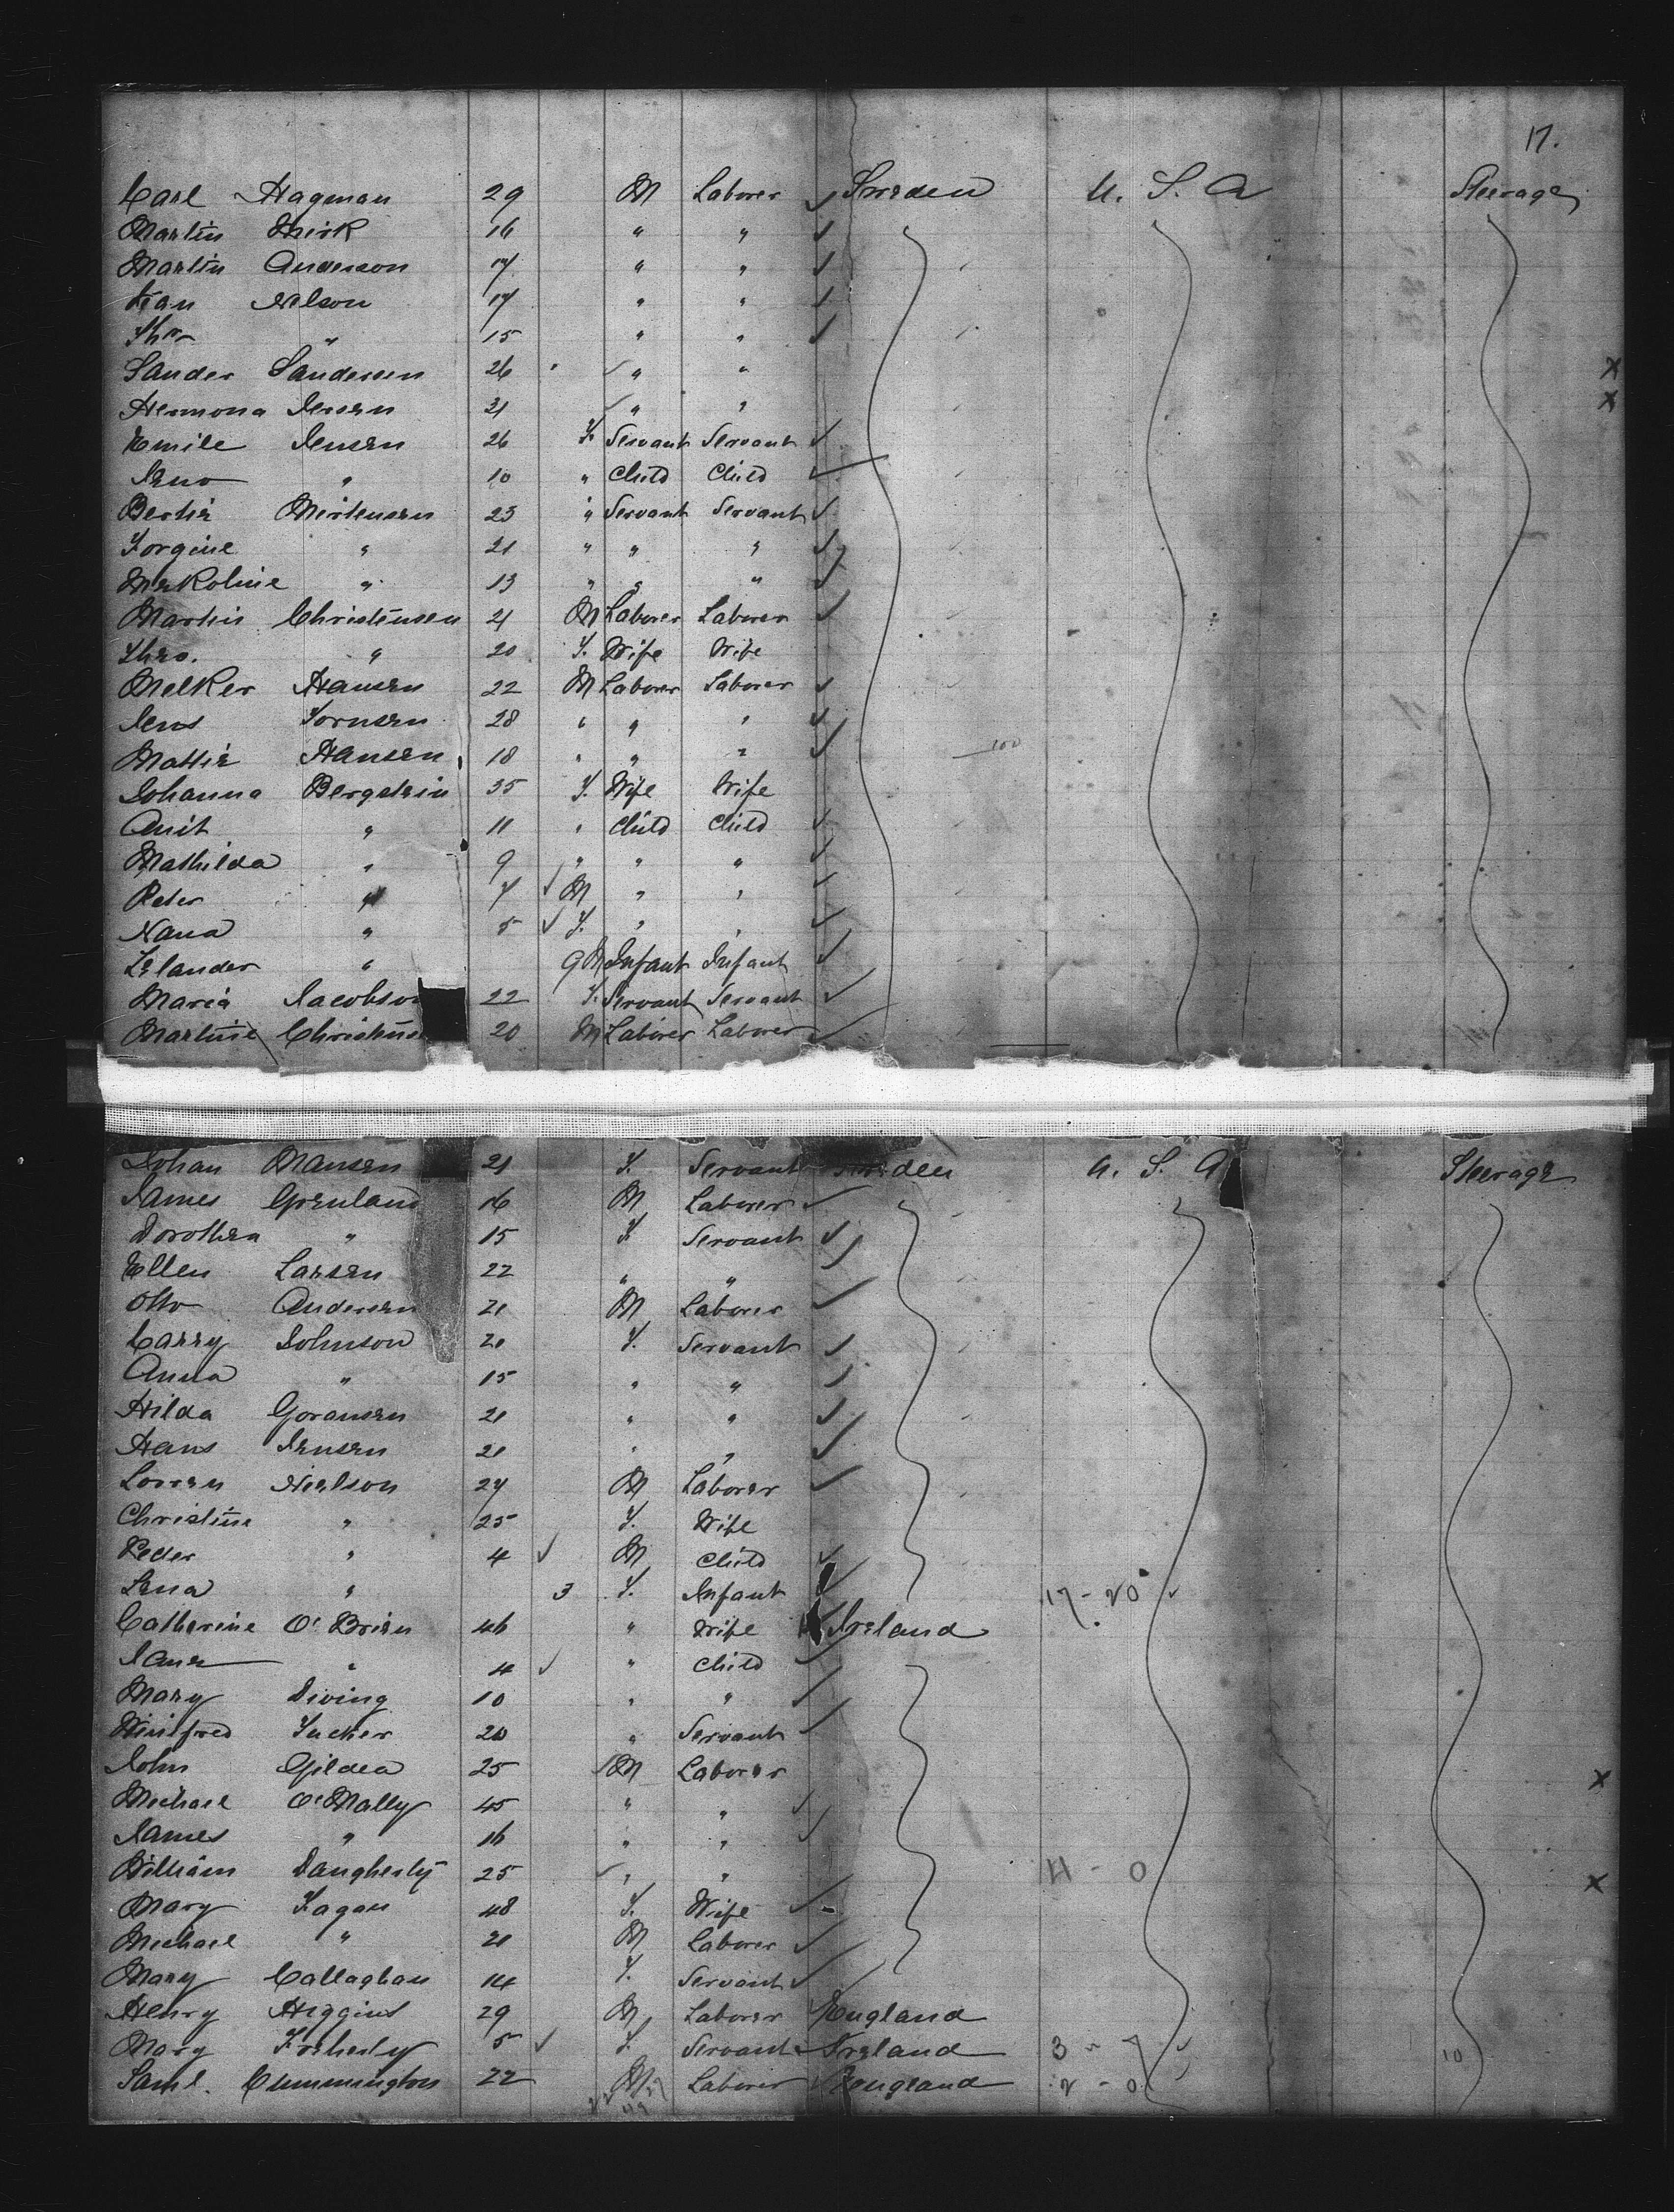 17.
Carl Hagman 29 M Laborer Sweden U. S. A Steerage
Martin Mirk 16 " "
Martin Anderson 17 " "
Nelson 17 " "
" 15 " "
Sander Sandersen 26 " " x
Hermona Jensen 21 " " x
Emile Jensen 26 F. Servant Servant
" 10 " Child Child
Bertie Mortensen 23 " Servant Servant
Jorgine " 21 " " "
" 13 " " "
Martin Christensen 21 M Laborer Laborer
Thro. " 20 F. Wife Wife
Melker Hansen 22 M Laborer Laborer
Jens Jornsen 28 " " "
Mattie Hansen 18 " " " 100
Johanna Bergstein 35 F. Wife Wife
Anit " 11 " Child Child
Mathilda " 9 " " "
Peter " 7 M " "
Nana " 5 F. " "
Lelander " 9 M Infant Infant
Maria Jacobson 22 F. Servant Servant
Martine 20 M Laborer Laborer
Johan Hansen 21 F. Servant Sweden U. S. A Steerage
James Grenland 16 M Laborer
Dorothea " 15 F. Servant
Ellen Larsen 22 " "
Otto Andersen 21 M Laborer
Carry Johnson 20 F. Servant
Anna " 15 " "
Hilda Goransen 21 " "
Hans Jensen 21 " "
Lorren Nielson 27 M Laborer
Christine " 25 F. Wife
Peder " 4 M Child
Lena " 3 F. Infant 17-20
Catherine O'Brien 46 " Wife Ireland
" 4 " Child
Mary Diving 10 " "
Winifred Tucker 20 " Servant
John Gildea 25 M Laborer x
Michael O'Mally 45 " "
James " 16 " "
William Daugherty 25 " " 11 - 0 x
Mary Fagan 48 F. Wife
Michael " 21 M Laborer
Mary Callaghan 14 F. Servant
Henry Higgins 29 M Laborer England
Mary 5 F. Servant Ireland 3 - 7 10
Saml. Cummington 22 M Laborer England 2 - 0